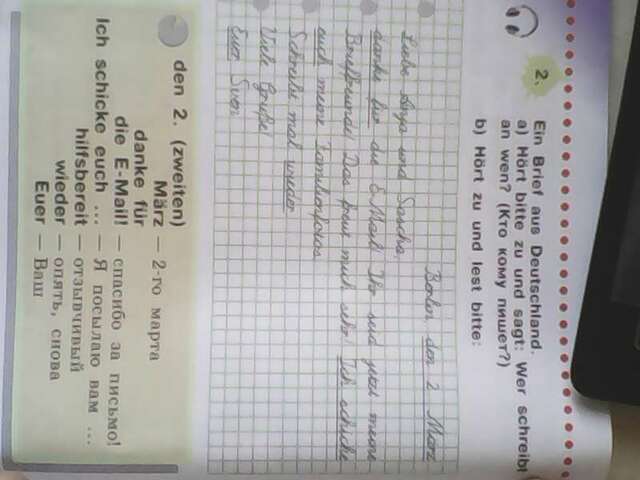 2. Ein Brief aus Deutschland.
a) Hört bitte zu und sagt: Wer schreibt
an wen? (Кто кому пишет?)
b) Hört zu und lest bitte:
Berlin, den 2. März
Liebe Anja und Sascha,
danke für die E-Mail! Ihr seid jetzt meine
Brieffreunde! Das freut mich sehr. Ich schicke
euch meine Familienfotos.
Schreibt mal wieder
Viele Grüße!
Euer Sven
den 2. (zweiten)
März — 2-го марта
danke für
die E-Mail! — спасибо за письмо!
Ich schicke euch ... — Я посылаю вам ...
hilfsbereit — отзывчивый
wieder — опять, снова
Euer — Ваш